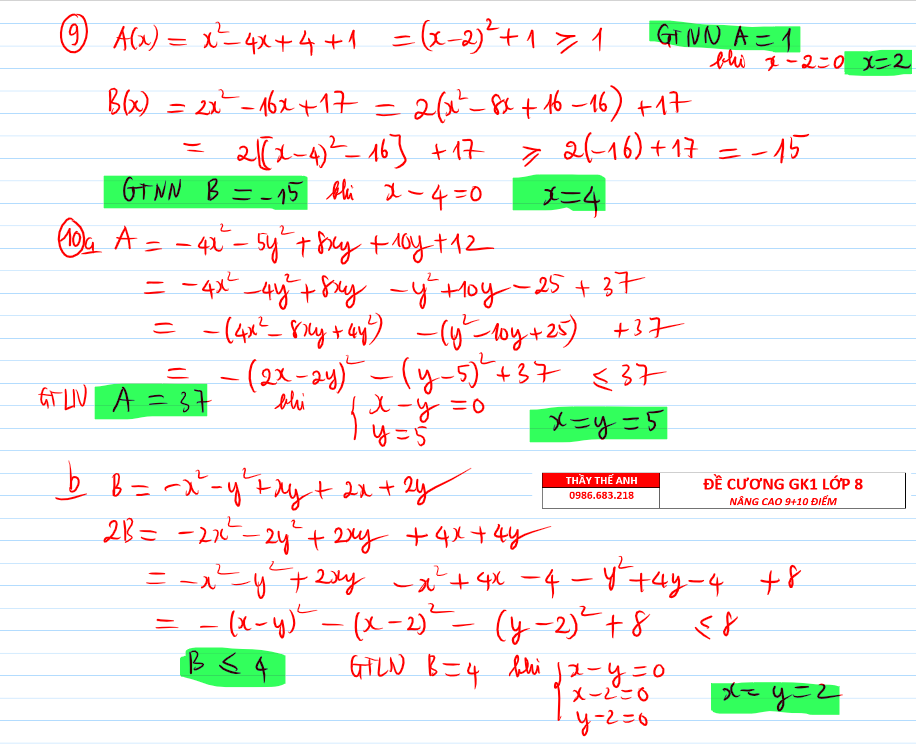 ⑨ A(x) = x² – 4x + 4 + 1 = (x – 2)² + 1 ⩾ 1 GTNN A = 1
khi x – 2 = 0 x = 2
B(x) = 2x² – 16x + 17 = 2(x² – 8x + 16 – 16) + 17
= 2[(x – 4)² – 16] + 17 ⩾ 2(–16) + 17 = –15
GTNN B = –15 khi x – 4 = 0 x = 4
⑩a A = –4x² – 5y² + 8xy + 10y + 12
= –4x² – 4y² + 8xy – y² + 10y – 25 + 37
= –(4x² – 8xy + 4y²) – (y² – 10y + 25) + 37
= –(2x – 2y)² – (y – 5)² + 37 ⩽ 37
GTLN A = 37 khi { x – y = 0
y = 5
x = y = 5
b B = –x² – y² + xy + 2x + 2y
THẦY THẾ ANH
0986.683.218
ĐỀ CƯƠNG GK1 LỚP 8
NÂNG CAO 9+10 ĐIỂM
2B = –2x² – 2y² + 2xy + 4x + 4y
= –x² – y² + 2xy – x² + 4x – 4 – y² + 4y – 4 + 8
= –(x – y)² – (x – 2)² – (y – 2)² + 8 ⩽ 8
B ⩽ 4 GTLN B = 4 khi { x – y = 0
x – 2 = 0
y – 2 = 0
x = y = 2